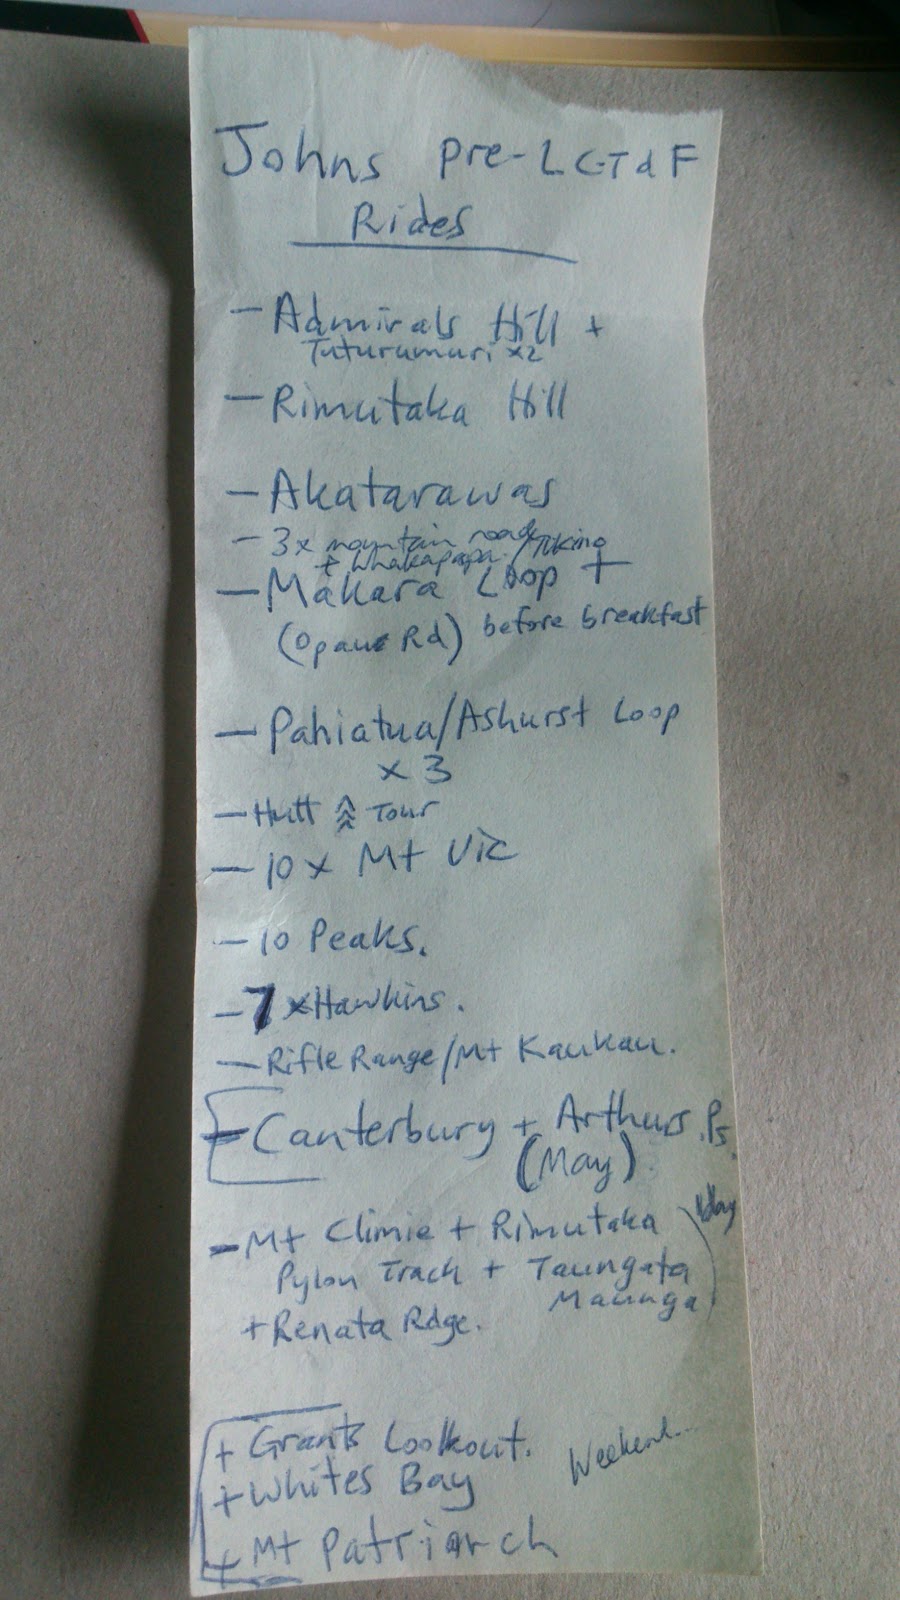 Johns pre-LCTdF
Rides
- Admirals Hill +
Tuturumuri x2
- Rimutaka Hill
- Akatarawas
- 3x mountain road/Tukino
+ Whakapapa.
- Makara Loop +
(Opau Rd) before breakfast
- Pahiatua/Ashurst Loop
x 3
- Hutt Tour
- 10 x Mt Vic
- 10 Peaks.
- 7 x Hawkins.
- Rifle Range/Mt Kaukau.
- Canterbury + Arthurs Ps.
(May).
- Mt Climie + Rimutaka
Pylon Track + Taungata
Maunga
+ Renata Rdge.
+ Grants Lookout.
+ Whites Bay
Weekend...
+ Mt Patriarch